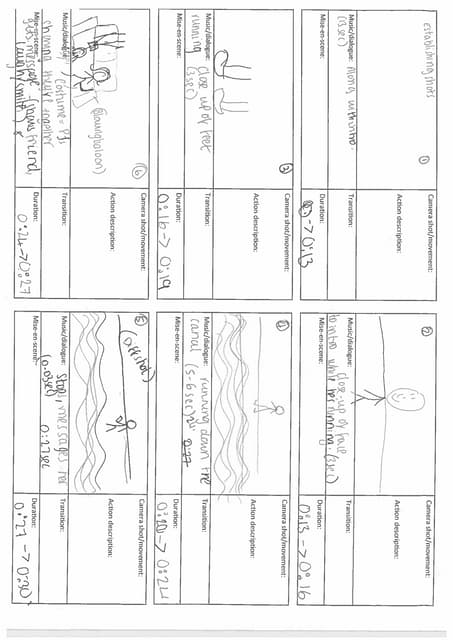 establishing shots
①
Camera shot/movement:
Action description:
Transition:
Music/dialogue: Along with intro.
(13sec)
Mise-en-scene:
Duration:
-> 0:13
②
Camera shot/movement:
Action description:
Transition:
Music/dialogue: close-up of face
to intro while he's running. (3sec)
Mise-en-scene:
Duration:
0:13 -> 0:16
③
Camera shot/movement:
Action description:
Transition:
Music/dialogue: close up of feet
running (3sec)
Mise-en-scene:
Duration:
0:16 -> 0:19
④
Camera shot/movement:
Action description:
Transition:
Music/dialogue: running down the
canal (5-6sec) 0:27
Mise-en-scene:
Duration:
0:20 -> 0:24
⑥
Camera shot/movement:
Action description:
Transition:
Music/dialogue: costume = PJs
showing they're together
Mise-en-scene:
gets message - (shows friend,
laugh/smile)
Duration:
0:24 -> 0:27
⑤
Camera shot/movement:
Action description:
Transition:
Music/dialogue: Stops, messages her
(0.03sec) 0:27sec
Mise-en-scene:
Duration:
0:27 -> 0:30